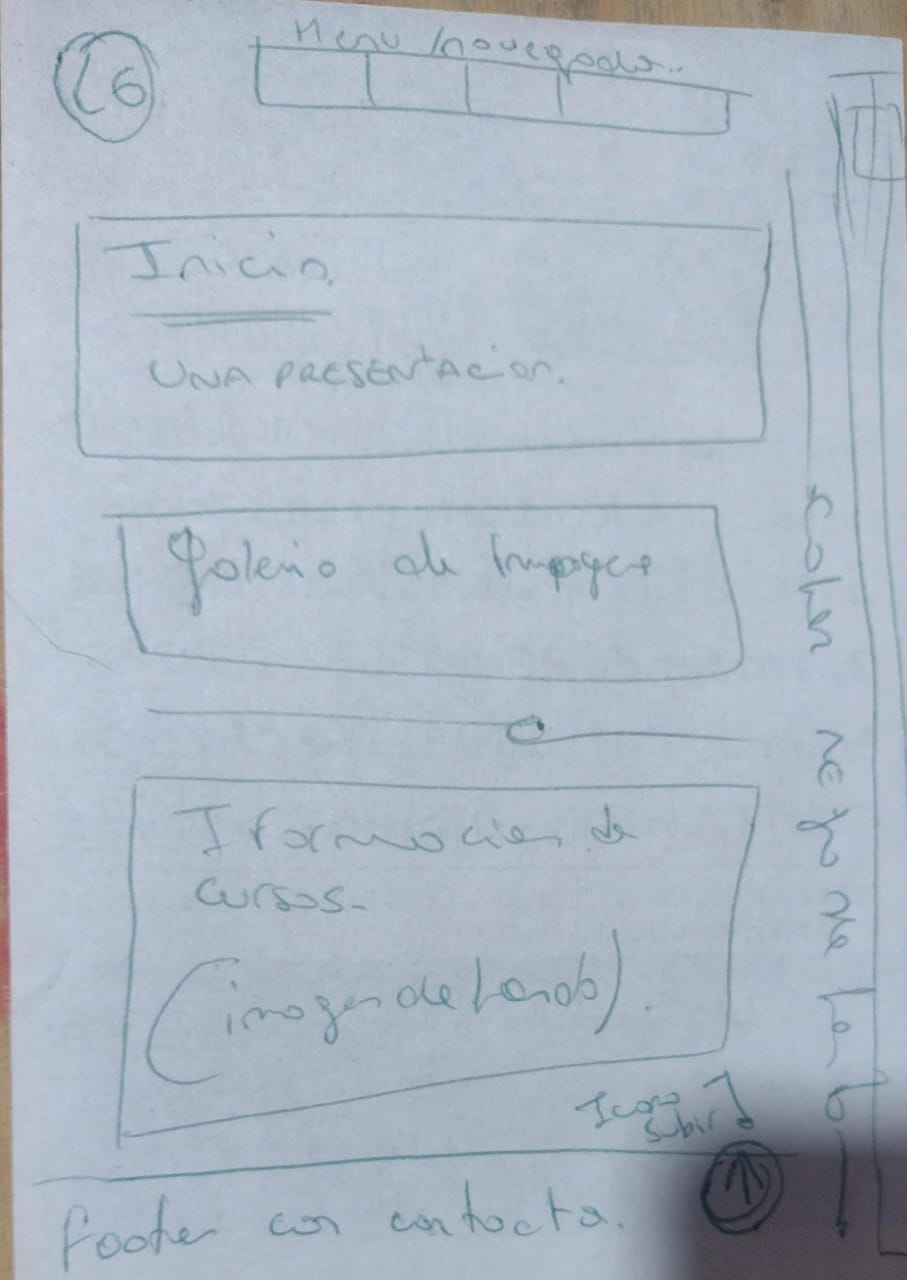 Menu /navegador..
Inicio.
UNA PRESENTACION.
Galeria de Imagenes
Iformacion de
cursos-
(imagen de fondo).
Icono
subir
footer con contacto.